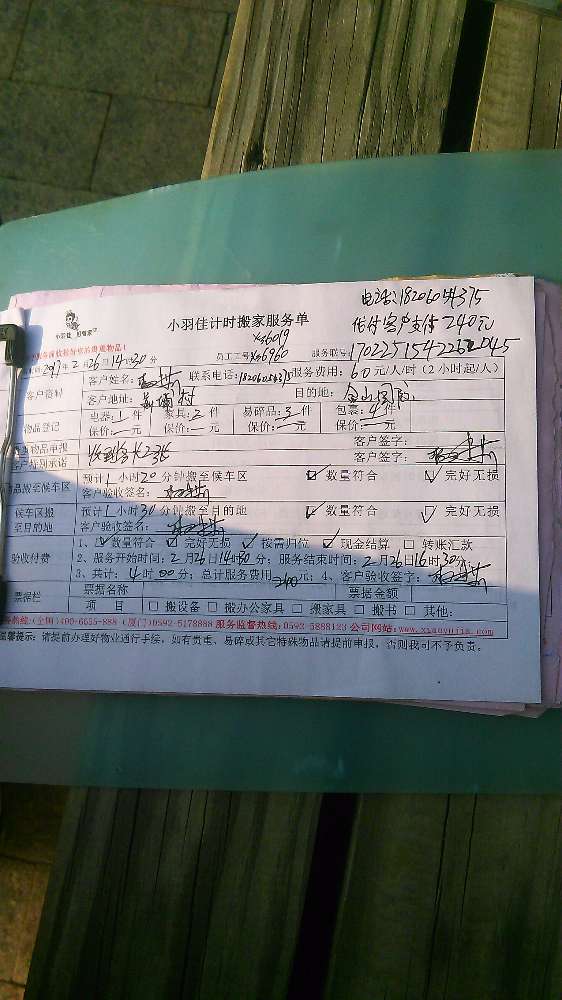 电话:18206054375
小羽佳计时搬家服务单
代付客户支付240元
小羽佳 
X36019
员工工号X66960 服务联号:170225154226 2045
2017年2月26日14时30分
客户资料 客户姓名: 联系电话:18206054375 服务费用:60元/人/时(2小时起/人)
客户地址: 目的地:金山国际
物品登记 电器:1件 家具:2件 易碎品:3件 包裹:4件
保价:一元 保价:一元 保价:一元 保价:一元
贵重物品申报 客户签字:
客户特别承诺 客户签字:
物品搬至候车区 预计1小时20分钟搬至候车区 ☑数量符合 ☑完好无损
客户验收签名:
候车区搬至目的地 预计1小时30分钟搬至目的地 ☑数量符合 ☑完好无损
客户验收签名:
验收付费 1、☑数量符合 ☑完好无损 ☑按需归位 ☑现金结算 □转账汇款
2、服务开始时间:2月26日14时30分;服务结束时间:2月26日16时30分
3、共计:4时00分;总计服务费用240元;4、客户验收签字:
票据栏 票据名称 票据金额
项 目 □搬设备 □搬办公家具 □搬家具 □搬书 □其他:
(全国)400-6655-888 (厦门)0592-5178888 服务监督热线:0592-5888123 公司网站:www.xiaoyujia.com
温馨提示:请提前办理好物业通行手续,如有贵重、易碎或其它特殊物品请提前申报,否则我司不予负责。